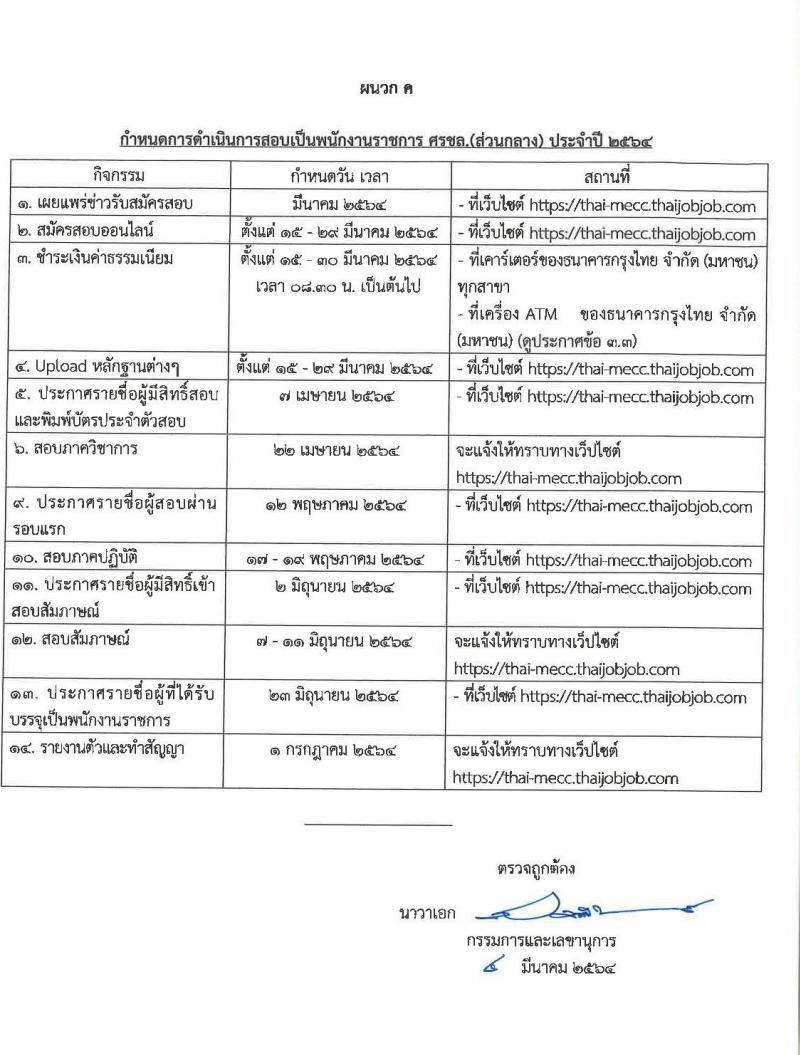 ผนวก ค
กำหนดการดำเนินการสอบเป็นพนักงานราชการ ศรชล.(ส่วนกลาง) ประจำปี ๒๕๖๔
กิจกรรม กำหนดวัน เวลา สถานที่
๑. เผยแพร่ข่าวรับสมัครสอบ มีนาคม ๒๕๖๔ - ที่เว็บไซต์ https://thai-mecc.thaijobjob.com
๒. สมัครสอบออนไลน์ ตั้งแต่ ๑๕ - ๒๙ มีนาคม ๒๕๖๔ - ที่เว็บไซต์ https://thai-mecc.thaijobjob.com
๓. ชำระเงินค่าธรรมเนียม ตั้งแต่ ๑๕ - ๓๐ มีนาคม ๒๕๖๔ - ที่เคาร์เตอร์ของธนาคารกรุงไทย จำกัด (มหาชน)
เวลา ๐๘.๓๐ น. เป็นต้นไป ทุกสาขา
- ที่เครื่อง ATM ของธนาคารกรุงไทย จำกัด
(มหาชน) (ดูประกาศข้อ ๓.๓)
๔. Upload หลักฐานต่างๆ ตั้งแต่ ๑๕ - ๒๙ มีนาคม ๒๕๖๔ - ที่เว็บไซต์ https://thai-mecc.thaijobjob.com
๕. ประกาศรายชื่อผู้มีสิทธิ์สอบ ๗ เมษายน ๒๕๖๔ - ที่เว็บไซต์ https://thai-mecc.thaijobjob.com
และพิมพ์บัตรประจำตัวสอบ
๖. สอบภาควิชาการ ๒๒ เมษายน ๒๕๖๔ จะแจ้งให้ทราบทางเว็บไซต์
https://thai-mecc.thaijobjob.com
๙. ประกาศรายชื่อผู้สอบผ่าน ๑๒ พฤษภาคม ๒๕๖๔ - ที่เว็บไซต์ https://thai-mecc.thaijobjob.com
รอบแรก
๑๐. สอบภาคปฏิบัติ ๑๗ - ๑๙ พฤษภาคม ๒๕๖๔ - ที่เว็บไซต์ https://thai-mecc.thaijobjob.com
๑๑. ประกาศรายชื่อผู้มีสิทธิ์เข้า ๒ มิถุนายน ๒๕๖๔ - ที่เว็บไซต์ https://thai-mecc.thaijobjob.com
สอบสัมภาษณ์
๑๒. สอบสัมภาษณ์ ๗ - ๑๑ มิถุนายน ๒๕๖๔ จะแจ้งให้ทราบทางเว็บไซต์
https://thai-mecc.thaijobjob.com
๑๓. ประกาศรายชื่อผู้ที่ได้รับ ๒๓ มิถุนายน ๒๕๖๔ - ที่เว็บไซต์ https://thai-mecc.thaijobjob.com
บรรจุเป็นพนักงานราชการ
๑๔. รายงานตัวและทำสัญญา ๑ กรกฎาคม ๒๕๖๔ จะแจ้งให้ทราบทางเว็ปไซต์
https://thai-mecc.thaijobjob.com
ตรวจถูกต้อง
นาวาเอก
กรรมการและเลขานุการ
มีนาคม ๒๕๖๔